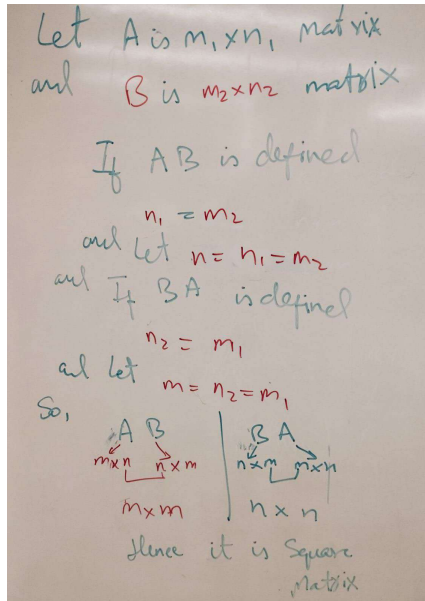 Let A is m₁×n₁ matrix
and B is m₂×n₂ matrix
If AB is defined
n₁ = m₂
and Let n = n₁ = m₂
and If BA is defined
n₂ = m₁
and Let m = n₂ = m₁
So,
A B
m×n n×m
m×m
B A
n×m m×n
n × n
Hence it is Square
matrix